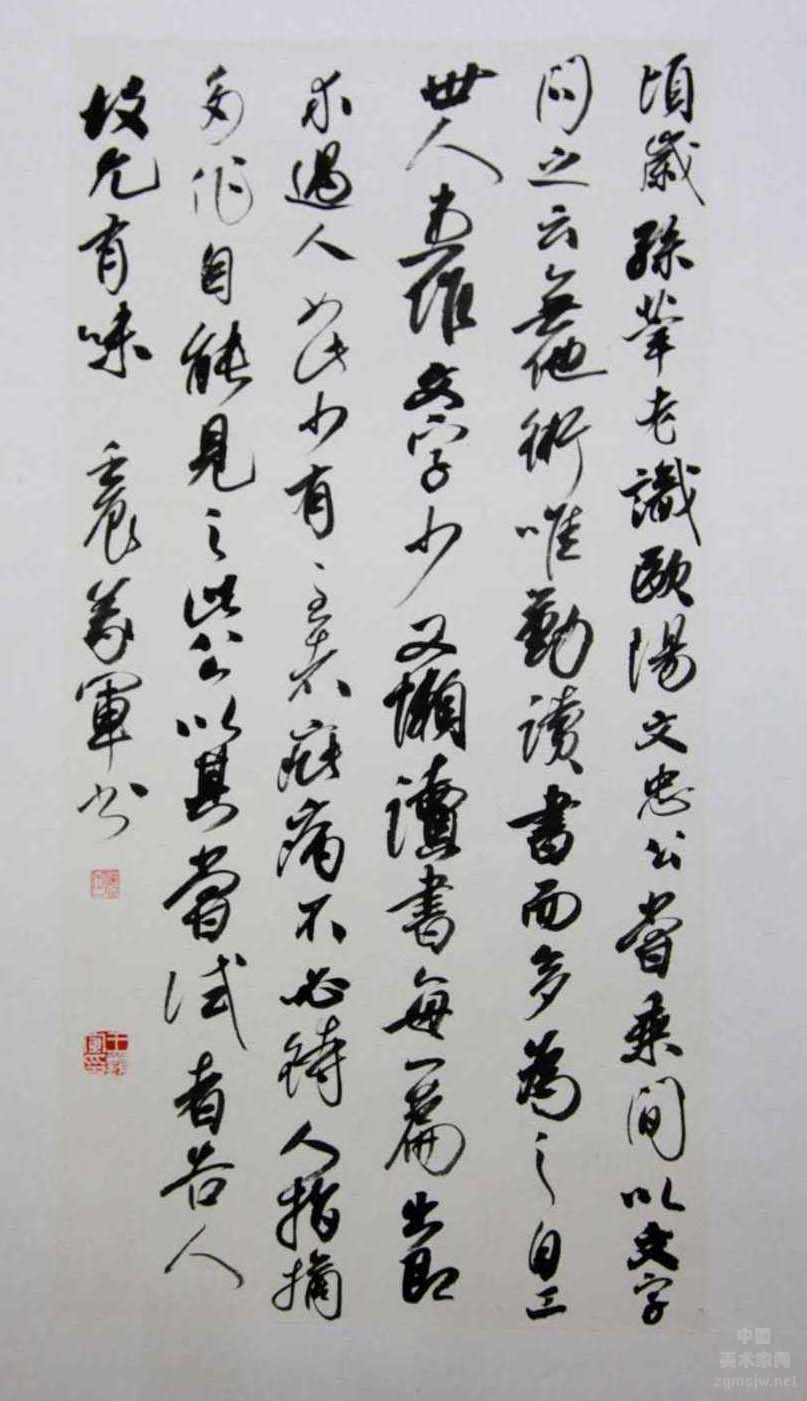 頃歲孫莘老識歐陽文忠公嘗乘間以文字
問之云無他術唯勤讀書而多為之自工
世人患作文字少又懶讀書每一篇出即
求過人如此少有至者疵病不必待人指摘
多作自能見之此公以其嘗試者告人
故尤有味 壬辰義軍书
王義軍印
中国
美术家网
zgmsjw.net